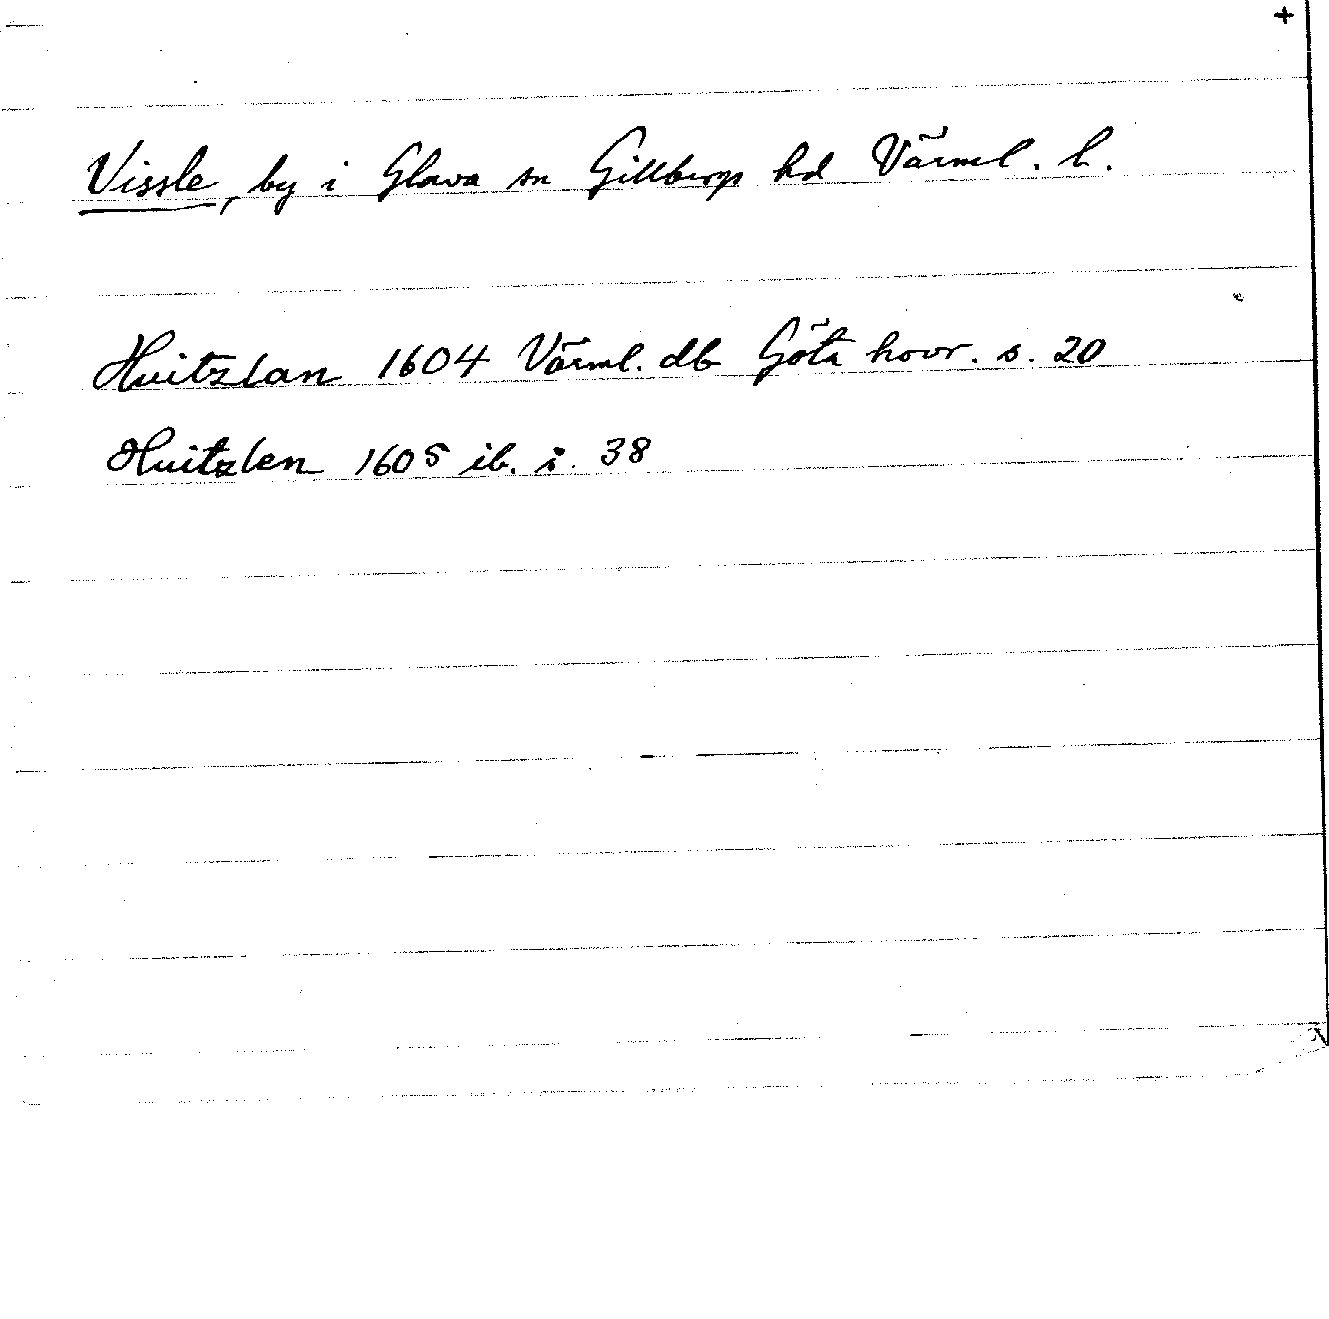 +
Vissle, by i Glava sn Gillbergs hd Värml. l.
Huitzlan 1604 Värml. db Göta hovr. s. 20
Huitzlen 1605 ib. s. 38